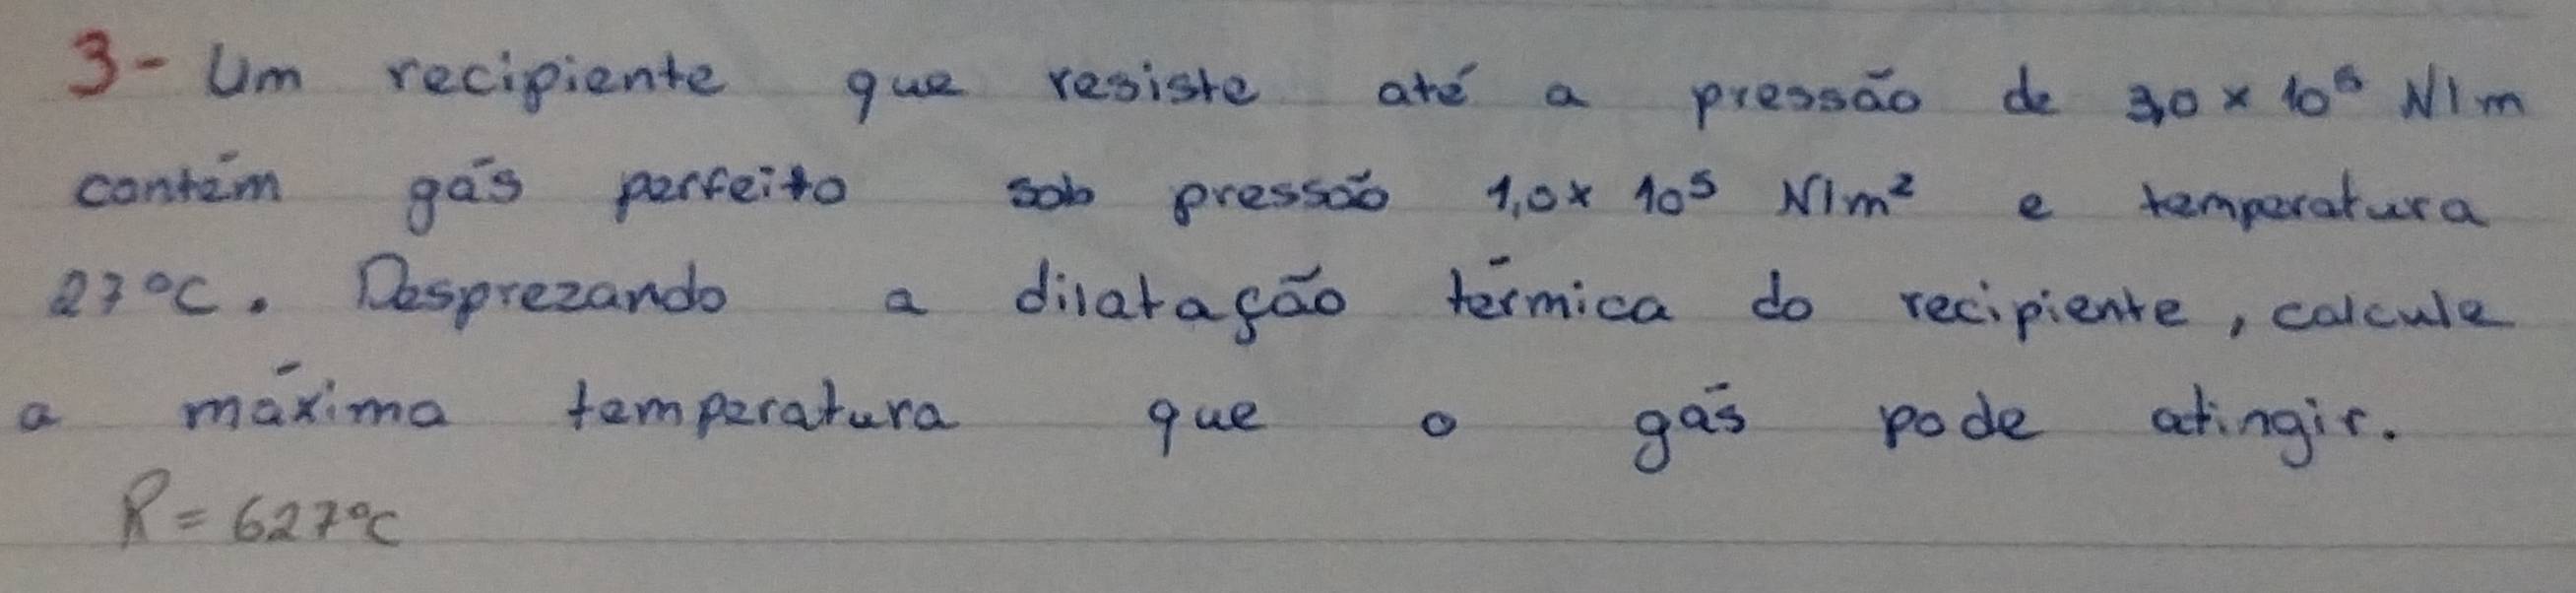 3- Um recipiente que resiste até a pressão de 3,0 x 10⁵ N/m
contém gás perfeito sob pressão 1,0x 10⁵ N/m² e temperatura
27°C. Desprezando a dilatação térmica do recipiente, calcule
a máxima temperatura que o gás pode atingir.
R = 627°C